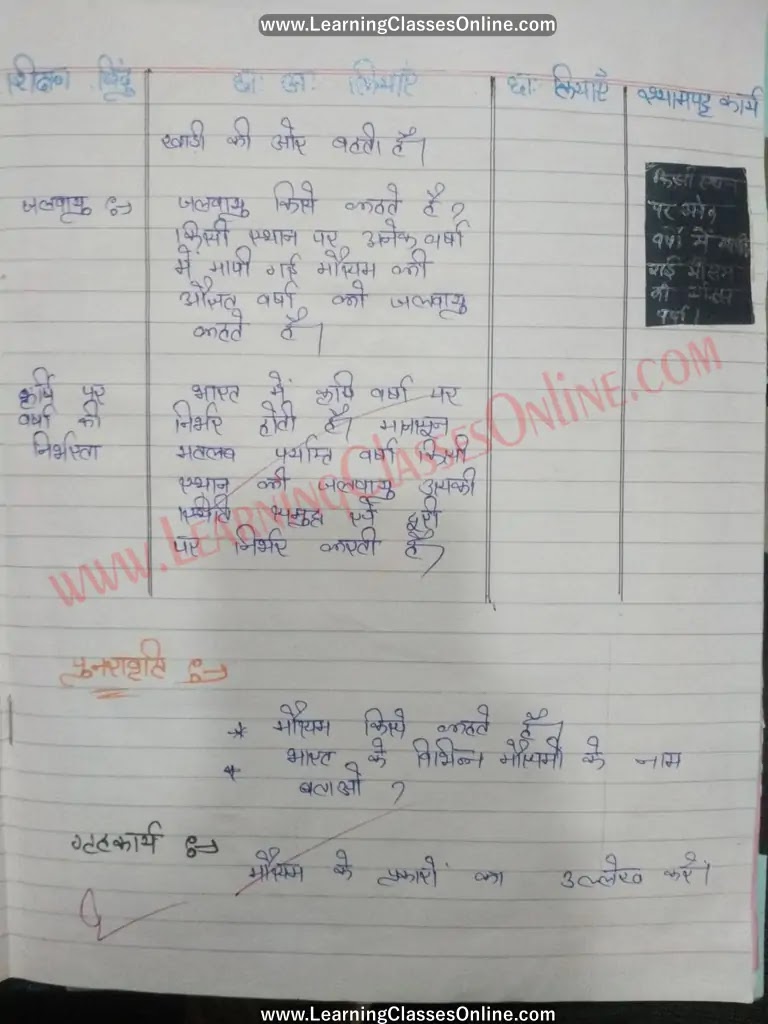 www.LearningClassesOnline.com
शिक्षण बिंदु छा. अ. क्रियाएँ छा. क्रियाएँ श्यामपट्ट कार्य
खाड़ी की ओर बहती है।
जलवायु :→ जलवायु किसे कहते है?
किसी स्थान पर अनेक वर्षा
में मापी गई मौसम की
औसत वर्षा को जलवायु
कहते है।
किसी स्थान
पर
वर्षो में
गई मौसम
की
वर्षा।
कृषि पर भारत में कृषि वर्षा पर
वर्षा की निर्भर होती है। मानसून
निर्भरता मतलब पर्याप्त वर्षा किसी
स्थान की जलवायु उसकी
स्थिति समुद्र से दूरी
पर निर्भर करती है।
www.LearningClassesOnline.com
पुनरावृति :→
* मौसम किसे कहते है।
* भारत के विभिन्न मौसमों के नाम
बताओ?
गृहकार्य :→
मौसम के प्रकारों का उल्लेख करें।
www.LearningClassesOnline.com